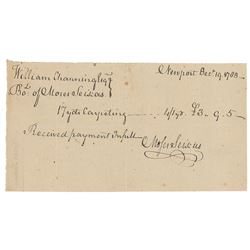 Newport Dec.r 19. 1788
William Channing Esqr
Bot. of Moses Seixas
17 yds Carpeting — 4/1 £3 - 9. 5 —
Received payment In full
Moses Seixas